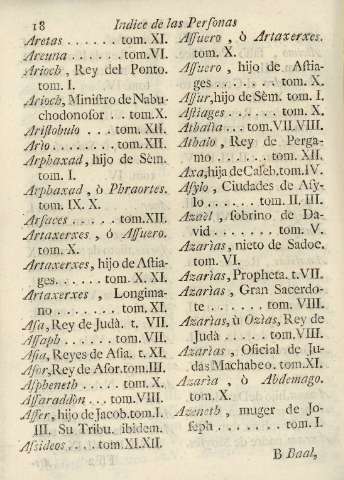 18 Indice de las Personas
Aretas . . . . . . tom. XI.
Areuna . . . . . . tom. VI.
Arioch, Rey del Ponto.
tom. I.
Arioch, Ministro de Nabu-
chodonosor . . . tom. X.
Aristobulo . . . tom. XII.
Arìo . . . . . . tom. XII.
Arphaxad, hijo de Sèm.
tom. I.
Arphaxad, ò Phraortes.
tom. IX. X.
Arsaces . . . . . tom. XII.
Artaxerxes, ó Assuero.
tom. X.
Artaxerxes, hijo de Astia-
ges. . . . . . tom. X. XI.
Artaxerxes, Longima-
no . . . . . . . tom. XI.
Asa, Rey de Judà. t. VII.
Assaph . . . . . tom. VII.
Asia, Reyes de Asia. t. XI.
Asor, Rey de Asor. tom. III.
Aspheneth . . . . tom. X.
Assaraddon . . . tom. VIII.
Asser, hijo de Jacob. tom. I.
III. Su Tribu. ibidem.
Assideos . . . . tom. XI. XII.
Assuero, ò Artaxerxes.
tom. X.
Assuero, hijo de Astia-
ges . . . . . . . tom. X.
Assur, hijo de Sèm. tom. I.
Astiages . . . . . tom. X.
Athalìa . . . tom. VII. VIII.
Athalo, Rey de Perga-
mo . . . . . . . tom. XII.
Axa, hija de Caleb. tom. IV.
Asylo, Ciudades de Asy-
lo . . . . . . tom. II. III.
Azaèl, sobrino de Da-
vid . . . . . . . tom. V.
Azarìas, nieto de Sadoc.
tom. VI.
Azarìas, Propheta. t. VII.
Azarìas, Gran Sacerdo-
te . . . . . . . tom. VIII.
Azarìas, ù Ozìas, Rey de
Judà . . . . . . tom. VIII.
Azarìas, Oficial de Ju-
das Machabeo. tom. XI.
Azarìa, ò Abdemago.
tom. X.
Azeneth, muger de Jo-
seph . . . . . . . tom. I.
B Baal,